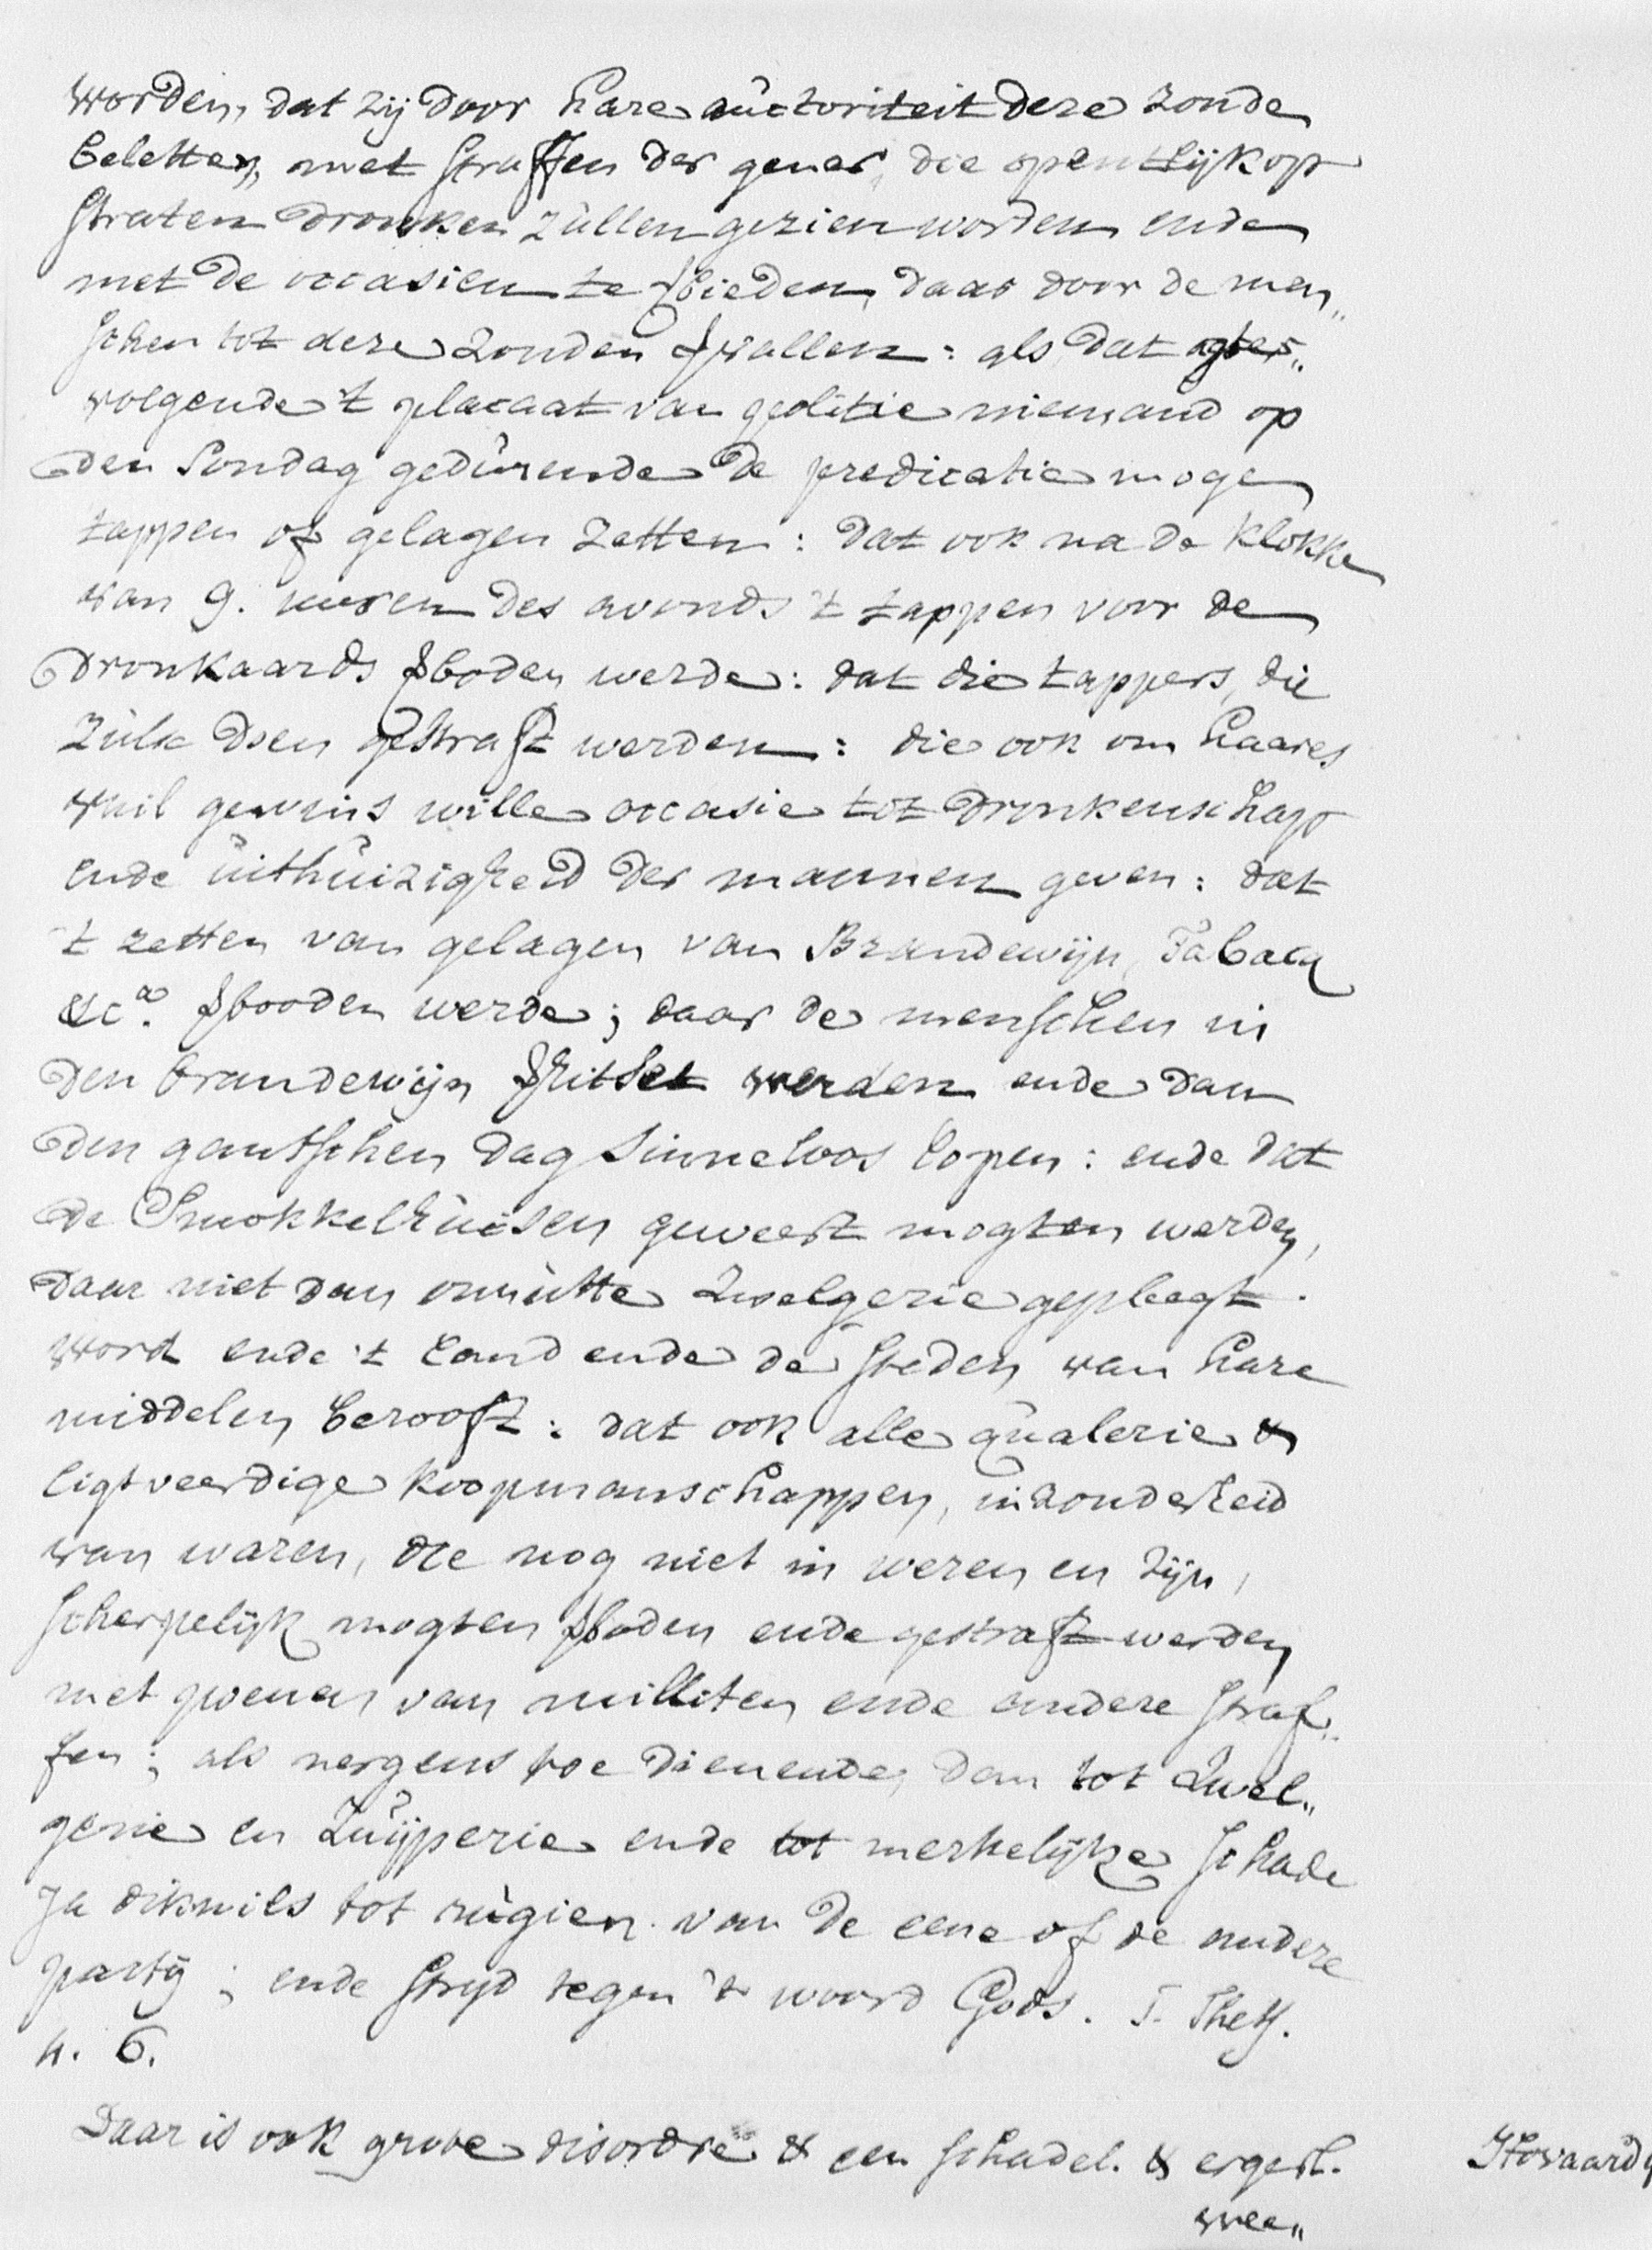 worden, dat zij door hare aúctoriteit deze zonde
beletten, met straffen der gener, die opentlijk op
straten dronken zúllen gezien worden ende
met de occasien te ꝟbieden, daar door de men„
schen tot deze zonden ꝟvallen: als, dat agter„
volgende 't placaat van politie niemand op
den Sondag gedúrende de predicatie moge
tappen of gelagen zetten: dat ook na de klokke
van 9. uuren des avonds 't tappen voor de
dronkaards ꝟboden werde: dat die tappers, die
zúlx doen gestraft werden: die ook om haares
vuil gewins wille occasie tot dronkenschap
ende úithúizigheid der mannen geven: dat
't zetten van gelagen van Brandewijn, Tabacq
&cᵃ. ꝟbooden werde; daar de menschen in
den brandewijn ꝟhitset werden ende dan
den gantschen dag sinneloos lopen: ende dat
de Smokkelhúisen geweert mogten werden,
daar niet dan onnútte zwelgerie gepleegt
word ende 't land ende de steden van hare
middelen berooft: dat ook alle qúalerie &
ligtveerdige koopmanschappen, inzonderheid
van waren, die nog niet in wezen en zijn,
scherpelijk mogten ꝟboden ende gestraft werden
met poenen van nulliten ende andere straf„
fen; als nergens toe dienende, dan tot zwel„
gerie en Zúijperie ende tot merkelijke schade
Ja dikwils tot rúgien van de eene of de andere
partij; ende strijd tegen 't woord Gods. I. Thess.
4. 6.
Daar is ook grove disordre & een schadel. & ergerl.
Hovaardy
wee„